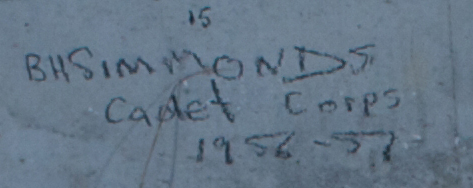 15
BHSIMMONDS
Cadet Corps
1956-57